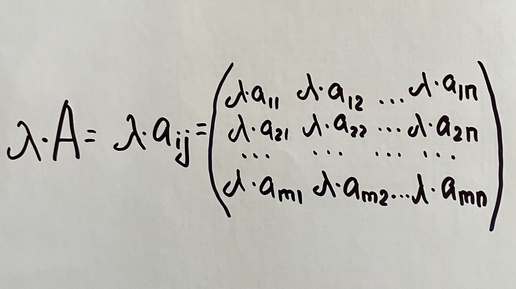 λ·A = λ·aij = (λ·a11 λ·a12 ... λ·a1n
λ·a21 λ·a22 ... λ·a2n
... ... ... ...
λ·am1 λ·am2 ... λ·amn)